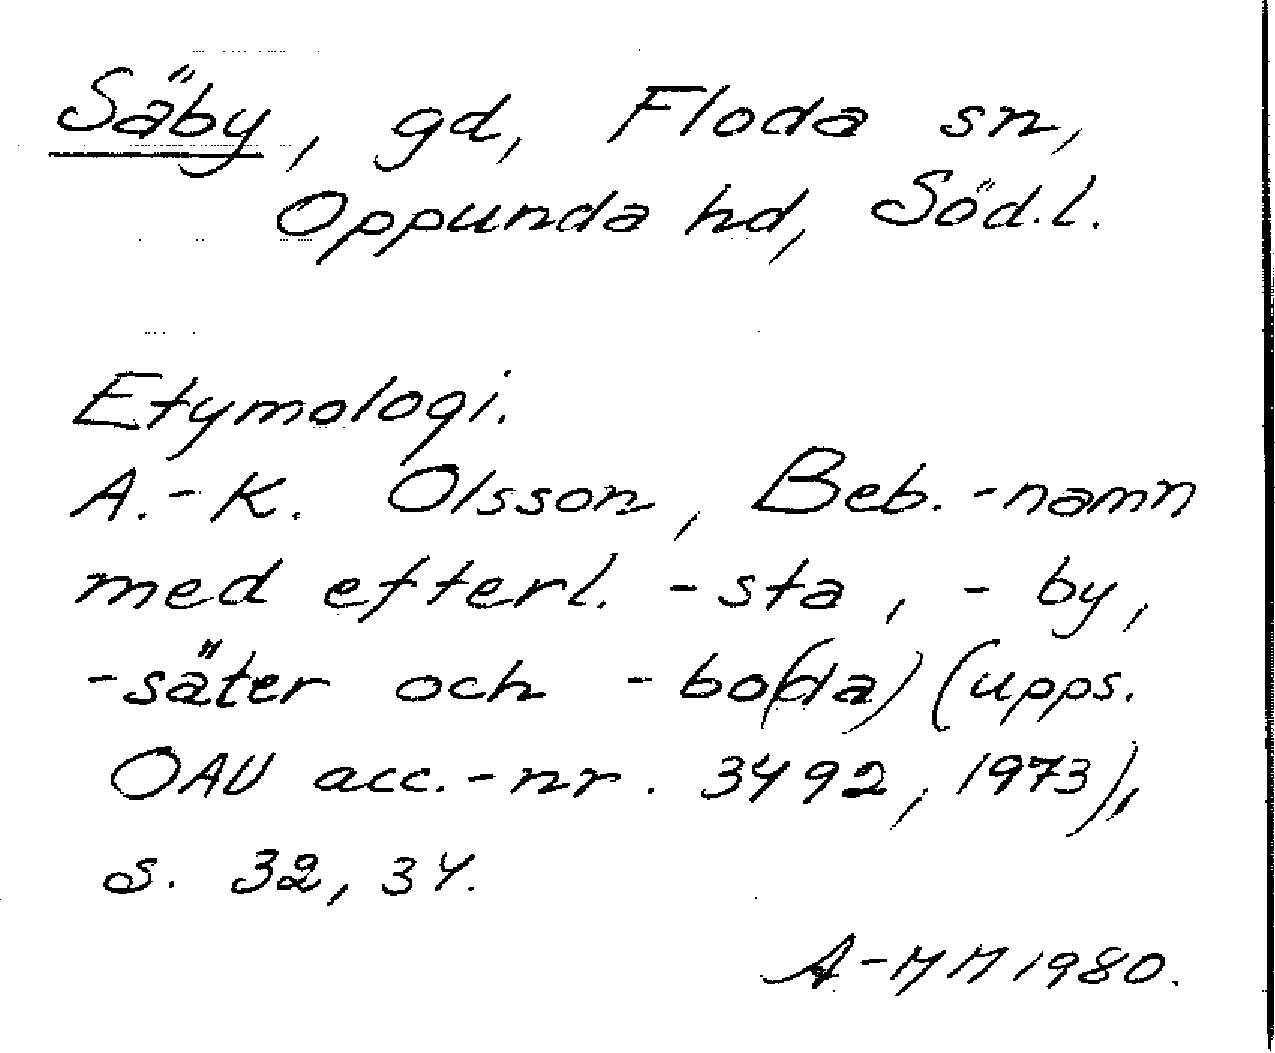 Säby, gd, Floda sn,
Oppunda hd, Söd.l.
Etymologi.
A.-K. Olsson, Beb.-namn
med efterl. -sta, -by,
-säter och -bo(da) (upps.
OAU acc.-nr. 3492, 1973),
s. 32, 34.
A-MM 1980.